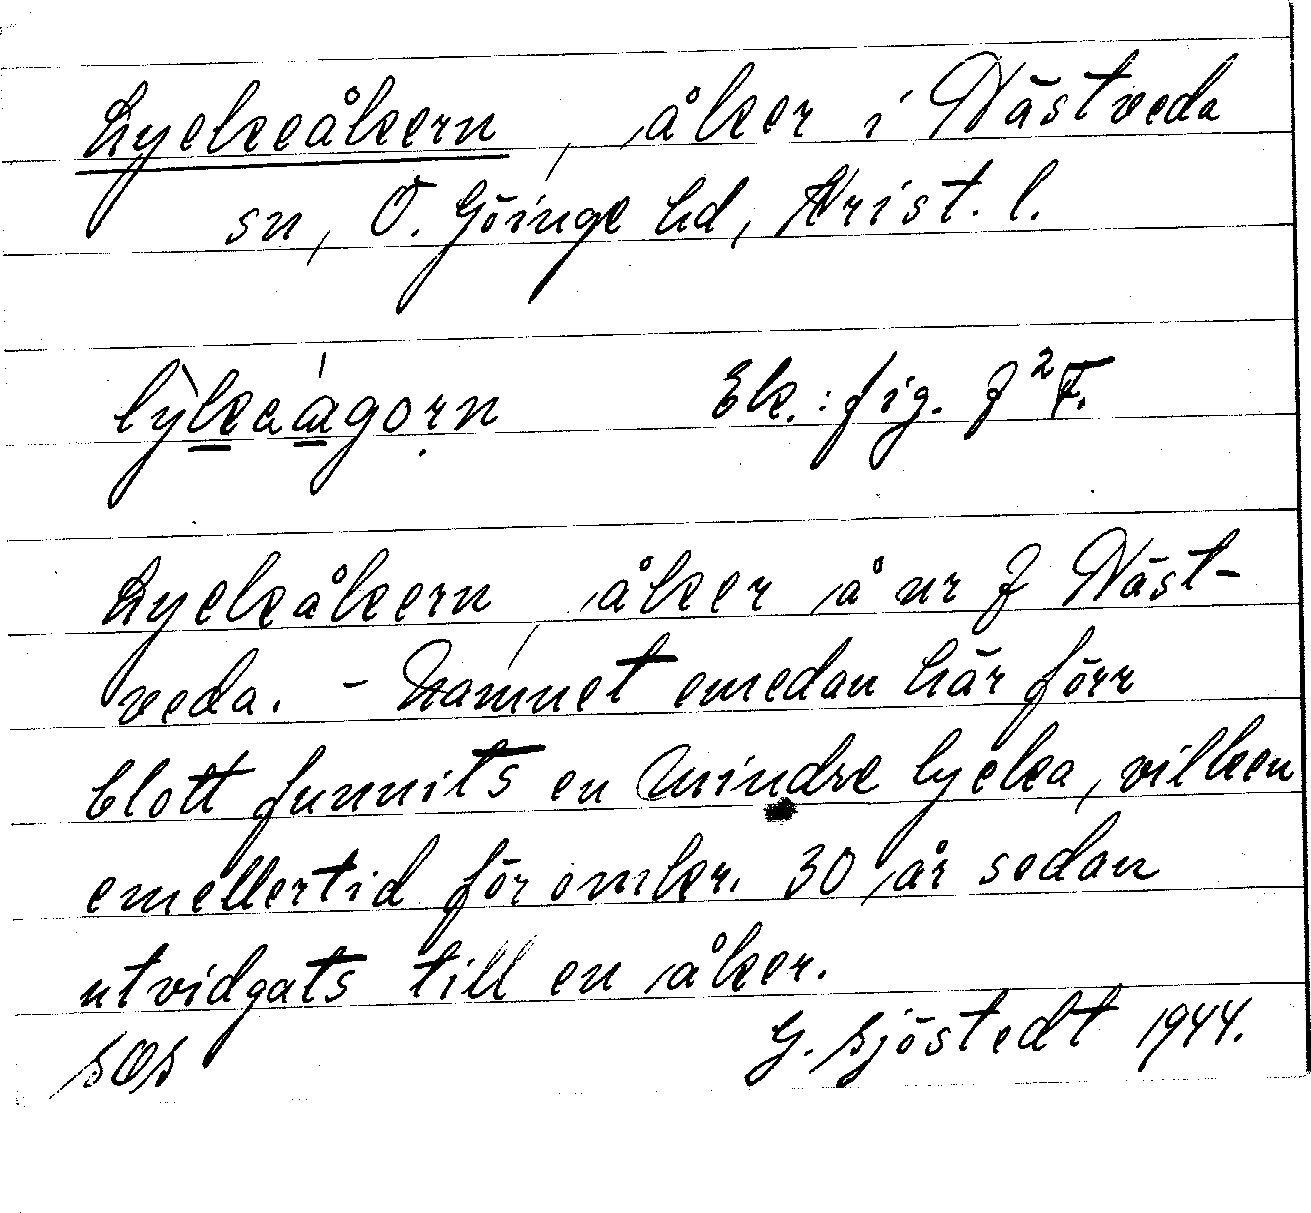 Lyckeåkern, åker i Nästveda
sn, Ö. Göinge hd, Krist. l.
lỳkaágorn Ek.: fig. 7²F.
Lyckeåkern, åker å nr 7 Näst-
veda. - Namnet emedan här förr
blott funnits en mindre lycka, vilken
emellertid för omkr. 30 år sedan
utvidgats till en åker.
SOS G. Sjöstedt 1944.